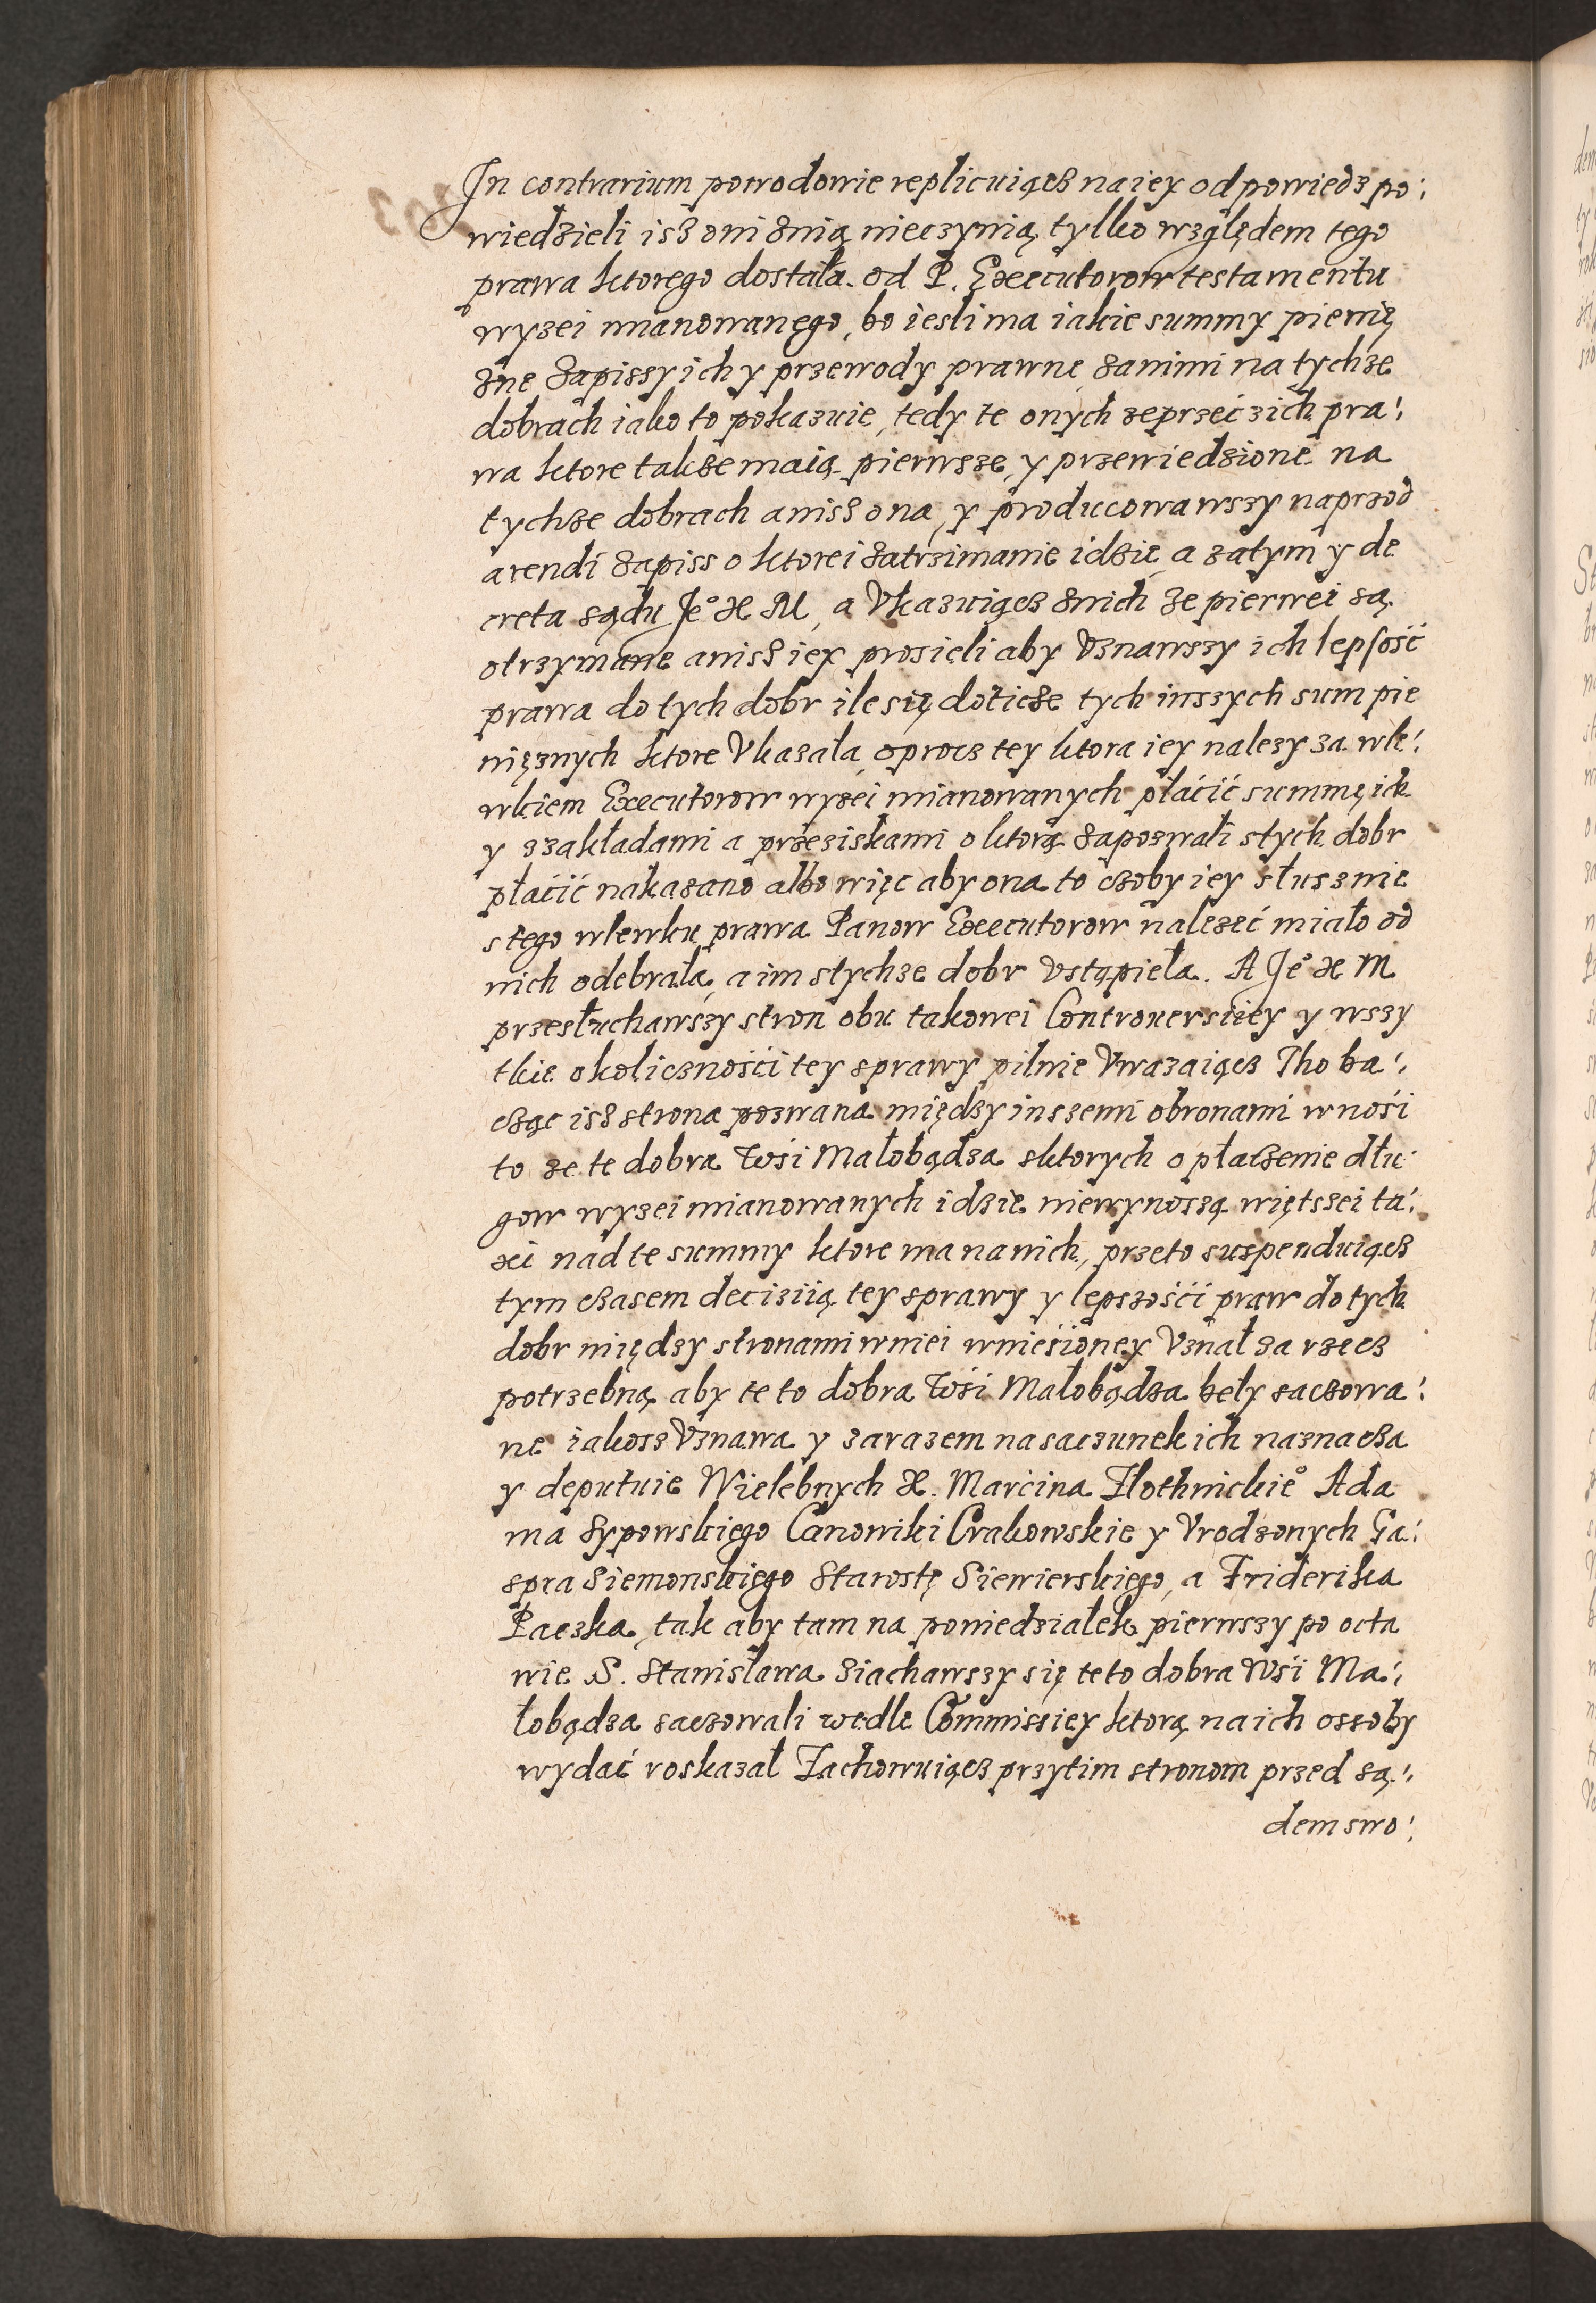 In contrarium powodowie replicuiącz na iey odpowiedz po:
wiedzieli isz oni znią nieczynią tylko względem tego
prawa ktorego dostała od P. Executorow testamentu
wyzei mianowanego, bo iesli ma iakie summy pienię
zne zapissy ich y przewody prawne zanimi na tychze
dobrach iako to pokazuie, tedy te onych zeprzeć zich pra:
wa ktore takze maią pierwsze, y przewiedzione na
tychze dobrach anisz ona, y producowawszy naprzod
arendi zapiss o ktorei zatrzimanie idzie, a zatym y de
creta sądu Je° X M, a Vkazuiącz znich ze pierwei są
otrzymane anisz iey prosieli aby Vznawszy ich lepszość
prawa do tych dobr ile się doticze tych inszych sum pie
nięznych ktore Vkazała, oprocz tey ktora iey nalezy za wle:
wkiem Executorow wyzei mianowanych płacić summę ich
y zzakładami a przeziskami o ktorą zapozwali stych dobr
płacić nakazano albo więc aby ona to czoby iey słusznie
stego wlewku prawa Panow Executorow nalezeć miało od
nich odebrała, a im stychze dobr vstąpieła. A Je° X M
przesłuchawszy stron obu takowei Controuersiiey y wszy
tkie okolicznośći tey sprawy pilnie Vwazaiącz Tho ba:
cząc isz strona pozwana między inszemi obronami wnośi
to ze te dobra Wśi Małobądza zktorych o płaczenie dłu
gow wyzei mianowanych idzie niewynoszą więtszei ta:
xei nad te summy ktore ma na nich, przeto suspenduiącz
tym czasem deciziią tey sprawy y lepszośći praw do tych
dobr między stronami wniei wnieśioney Vznał za rzecz
potrzebną aby te to dobra Wśi Małobądza beły saczowa:
ne iakosz Vznawa y zarazem na saczunek ich naznacza
y deputuie Wielebnych X. Marćina Złothnickie° Ada
ma Sypowskiego Canoniki Crakowskie y Vrodzonych Ga:
spra Siemonskiego Starostę Siewierskiego, a Friderika
Paczka, tak aby tam na poniedziałek pierwszy po octa
wie S. Stanisława ziachawszy się te to dobra Wśi Ma:
łobądza saczowali wedle Commissiey ktorą na ich ossoby
wydać roskazał Zachowuiącz przytim stronom przed są:
dem swo: